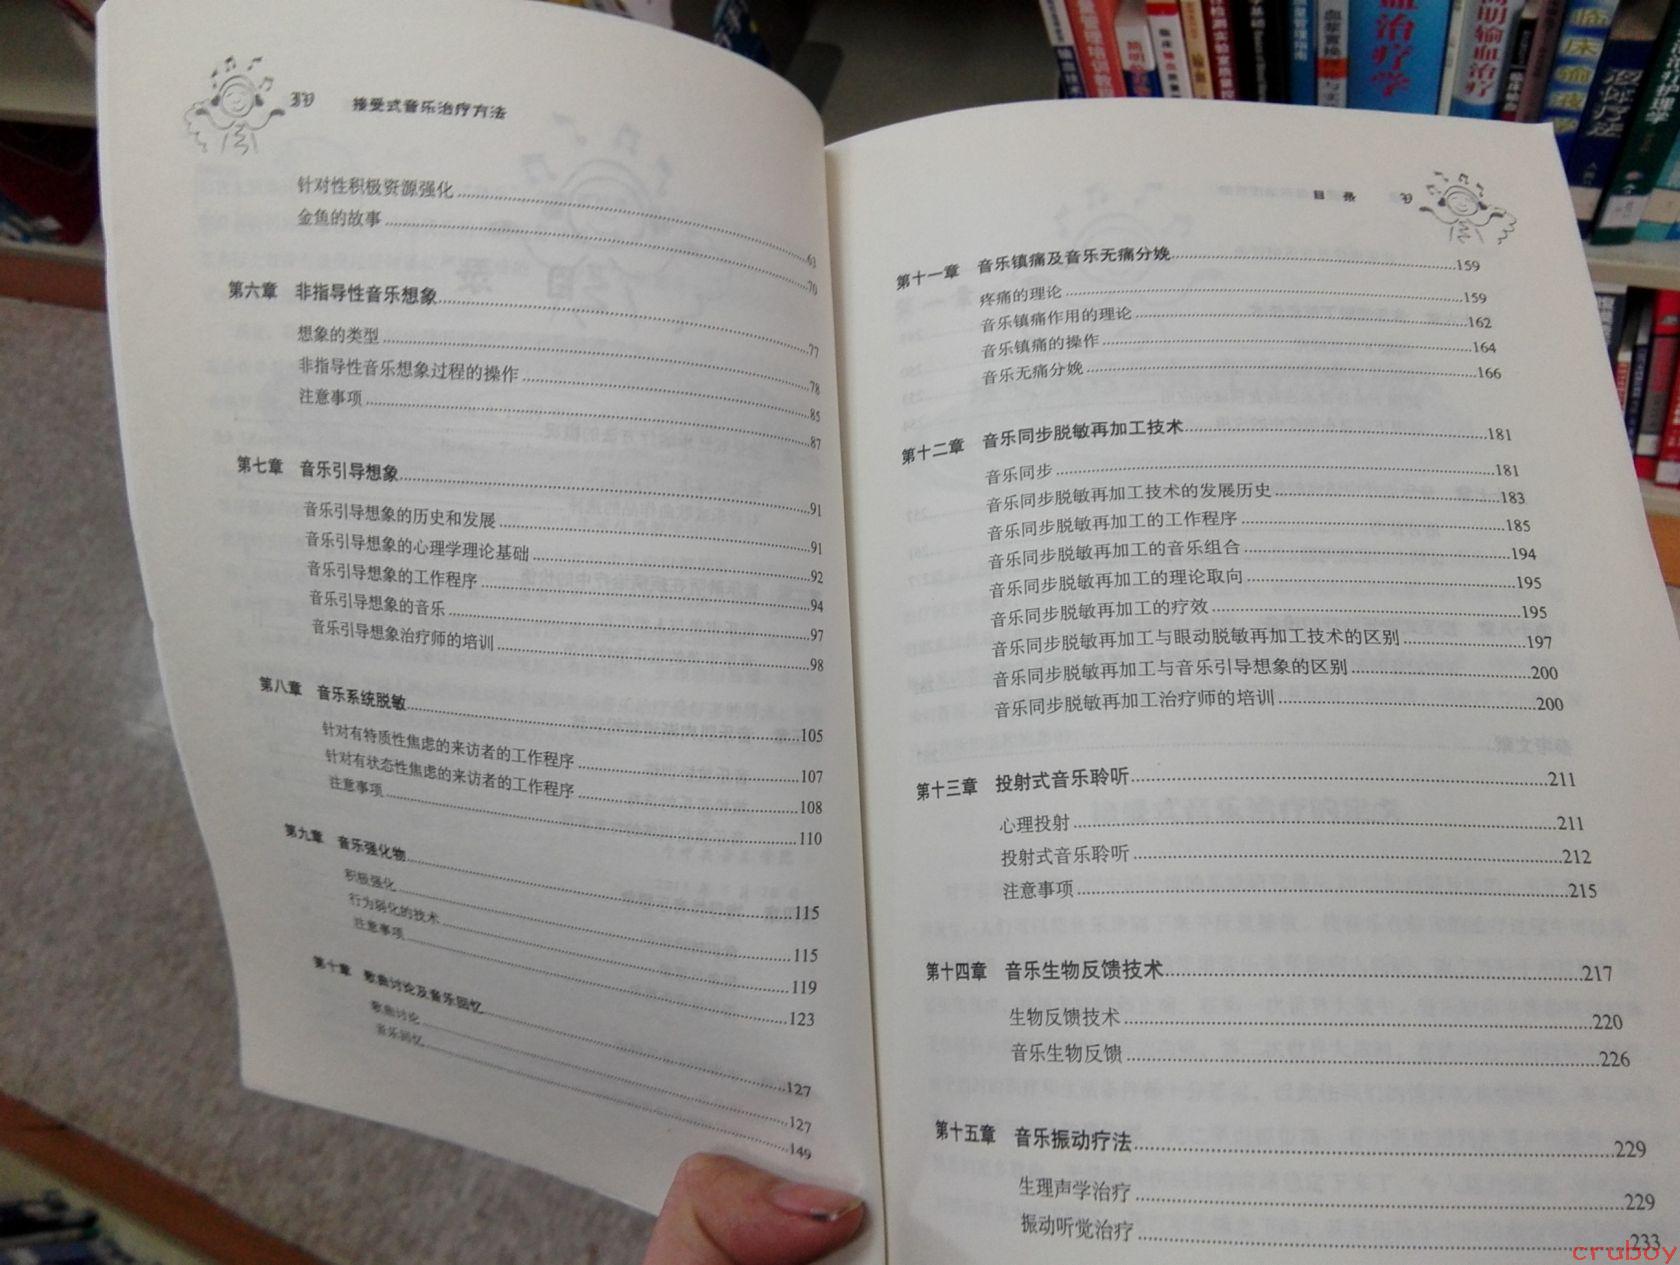 IV 接受式音乐治疗方法
针对性积极资源强化 63
金鱼的故事 70
第六章 非指导性音乐想象 77
想象的类型 78
非指导性音乐想象过程的操作 85
注意事项 87
第七章 音乐引导想象 91
音乐引导想象的历史和发展 91
音乐引导想象的心理学理论基础 92
音乐引导想象的工作程序 94
音乐引导想象的音乐 97
音乐引导想象治疗师的培训 98
第八章 音乐系统脱敏 105
针对有特质性焦虑的来访者的工作程序 107
针对有状态性焦虑的来访者的工作程序 108
注意事项 110
第九章 音乐强化物 115
积极强化 115
行为弱化的技术 119
注意事项 123
第十章 歌曲讨论及音乐回忆 127
歌曲讨论 127
音乐回忆 149
目录 V
第十一章 音乐镇痛及音乐无痛分娩 159
疼痛的理论 159
音乐镇痛作用的理论 162
音乐镇痛的操作 164
音乐无痛分娩 166
第十二章 音乐同步脱敏再加工技术 181
音乐同步 181
音乐同步脱敏再加工技术的发展历史 183
音乐同步脱敏再加工的工作程序 185
音乐同步脱敏再加工的音乐组合 194
音乐同步脱敏再加工的理论取向 195
音乐同步脱敏再加工的疗效 195
音乐同步脱敏再加工与眼动脱敏再加工技术的区别 197
音乐同步脱敏再加工与音乐引导想象的区别 200
音乐同步脱敏再加工治疗师的培训 200
第十三章 投射式音乐聆听 211
心理投射 211
投射式音乐聆听 212
注意事项 215
第十四章 音乐生物反馈技术 217
生物反馈技术 220
音乐生物反馈 226
第十五章 音乐振动疗法 229
生理声学治疗 229
振动听觉治疗 233
血治疗学
简明输血治疗
临床输液学
液体疗法
治疗护理学
cruboy